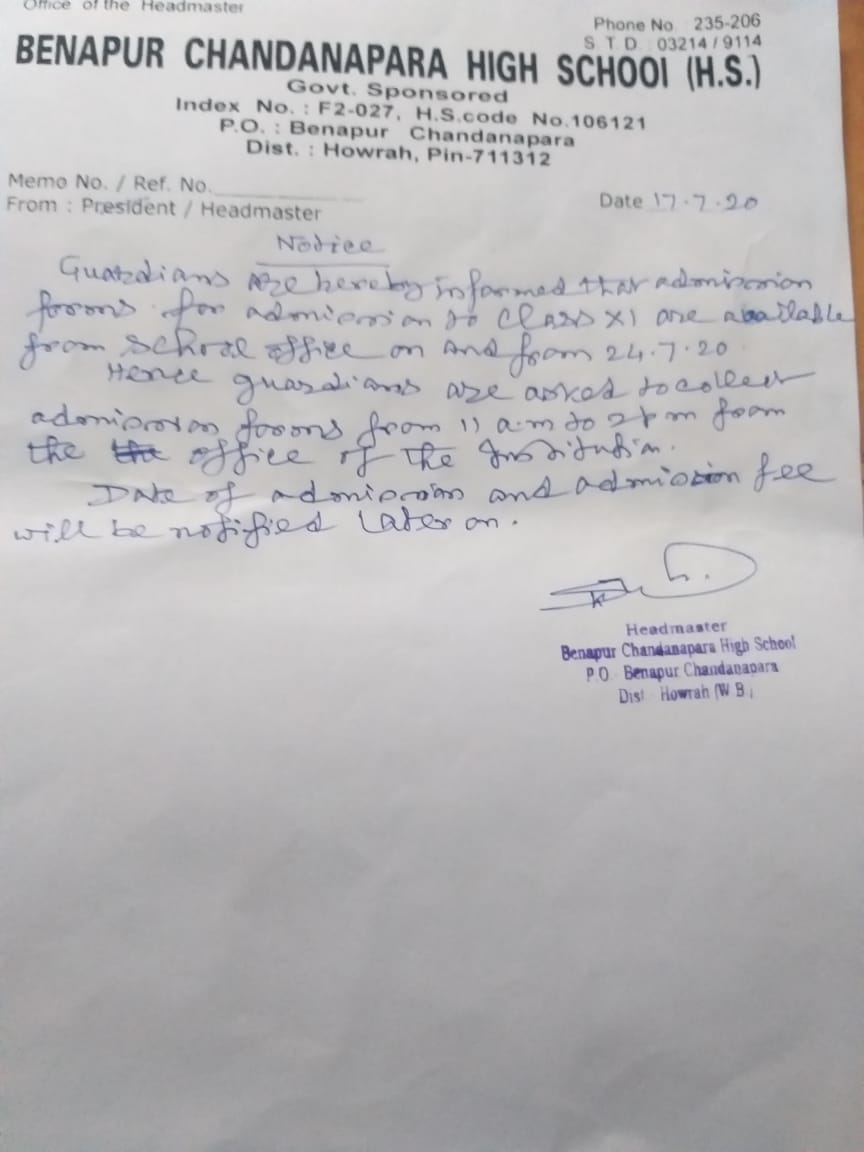 Office of the Headmaster
Phone No. 235-206
S. T. D. 03214 / 9114
BENAPUR CHANDANAPARA HIGH SCHOOL (H.S.)
Govt. Sponsored
Index No. : F2-027, H.S.code No.106121
P.O. : Benapur Chandanapara
Dist. : Howrah, Pin-711312
Memo No. / Ref. No.
From : President / Headmaster
Date 17.7.20
Notice
Guardians are hereby informed that admission
forms for admission to Class XI are abailable
from School office on and from 24.7.20
Hence guardians are asked to collect
admission forms from 11 a.m to 2 p m from
the the office of the Institution.
Date of admission and admission fee
will be notified later on.
Headmaster
Benapur Chandanapara High School
P.O. Benapur Chandanapara
Dist. Howrah (W.B.)